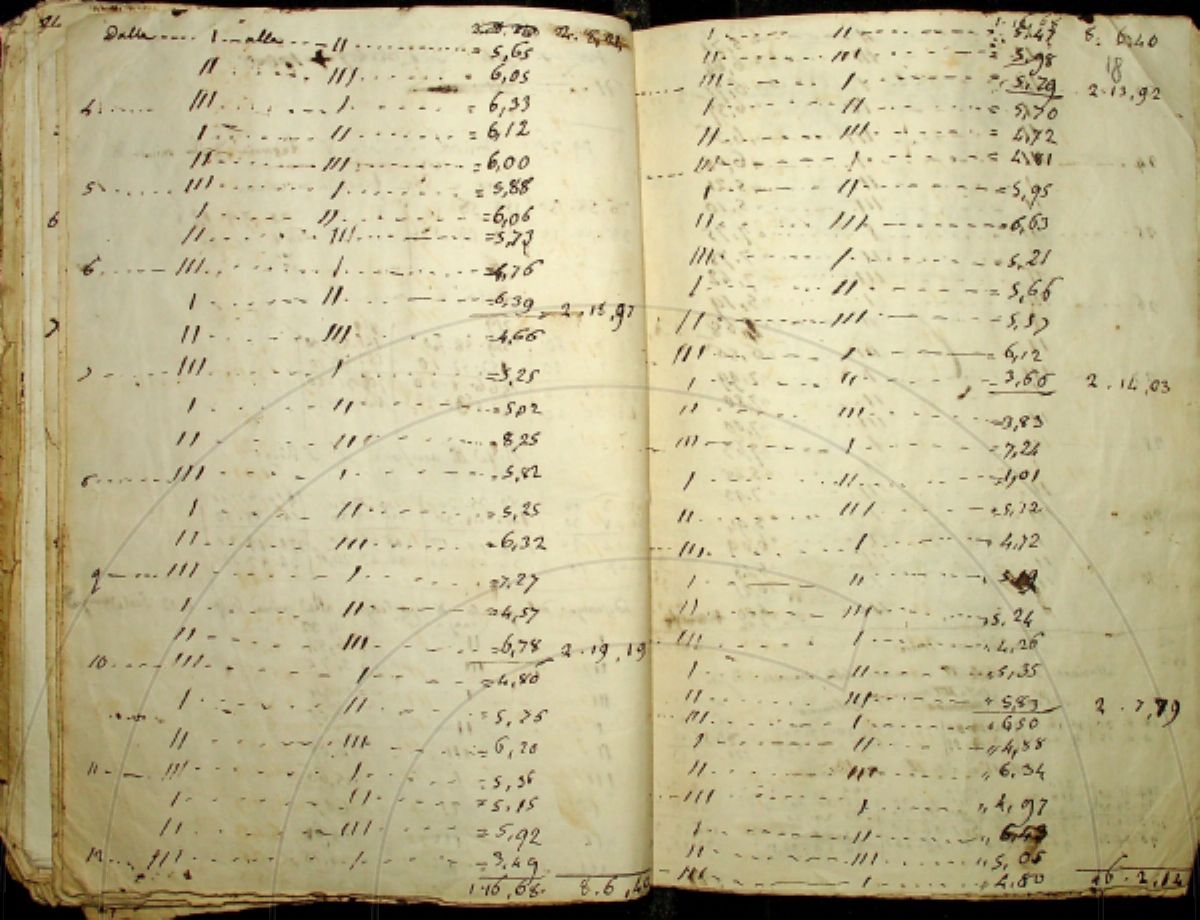 Dalle I alle II = 5,65
II III 6,05
4. III I = 6,33
I II = 6,12
II III = 6,00
5 III I = 5,88
I II = 6,06
II III = 5,73
6 III I = 4,76
I II = 6,39 2.18,97
II III = 4,66
7 III I = 5,25
I II = 5,02
II III = 8,25
III I = 5,82
I II = 5,25
II III = 6,32
9 III I = 7,27
I II = 4,57
II III = 6,78 2.19,19
10. III I = 4,80
I II = 5,75
II III = 6,20
11 III I = 5,36
I II = 5,15
II III = 5,92
12 III I = 3,49
1.16,68. 8.6,40
I II = 5,47 8.6,40
18
II III = 5,98
III I = 5,29 2.13,92
I II = 5,70
II III = 4,72
III I = 4,81
I II = 5,95
II III = 6,63
III I = 5,21
I II = 5,66
II III = 5,57
III I = 6,12
I II = 3,66 2.14,03
II III = 3,83
III I = 7,24
I II
II III = 5,72
III I 4,72
I II
II III 5,24
III I 4,26
I II 5,35
II III 5,83 2.7,79
III I 6,50
I II 4,88
II III 6,34
III I 4,97
I II
II III 5,05
III I 4,80 16.2,14